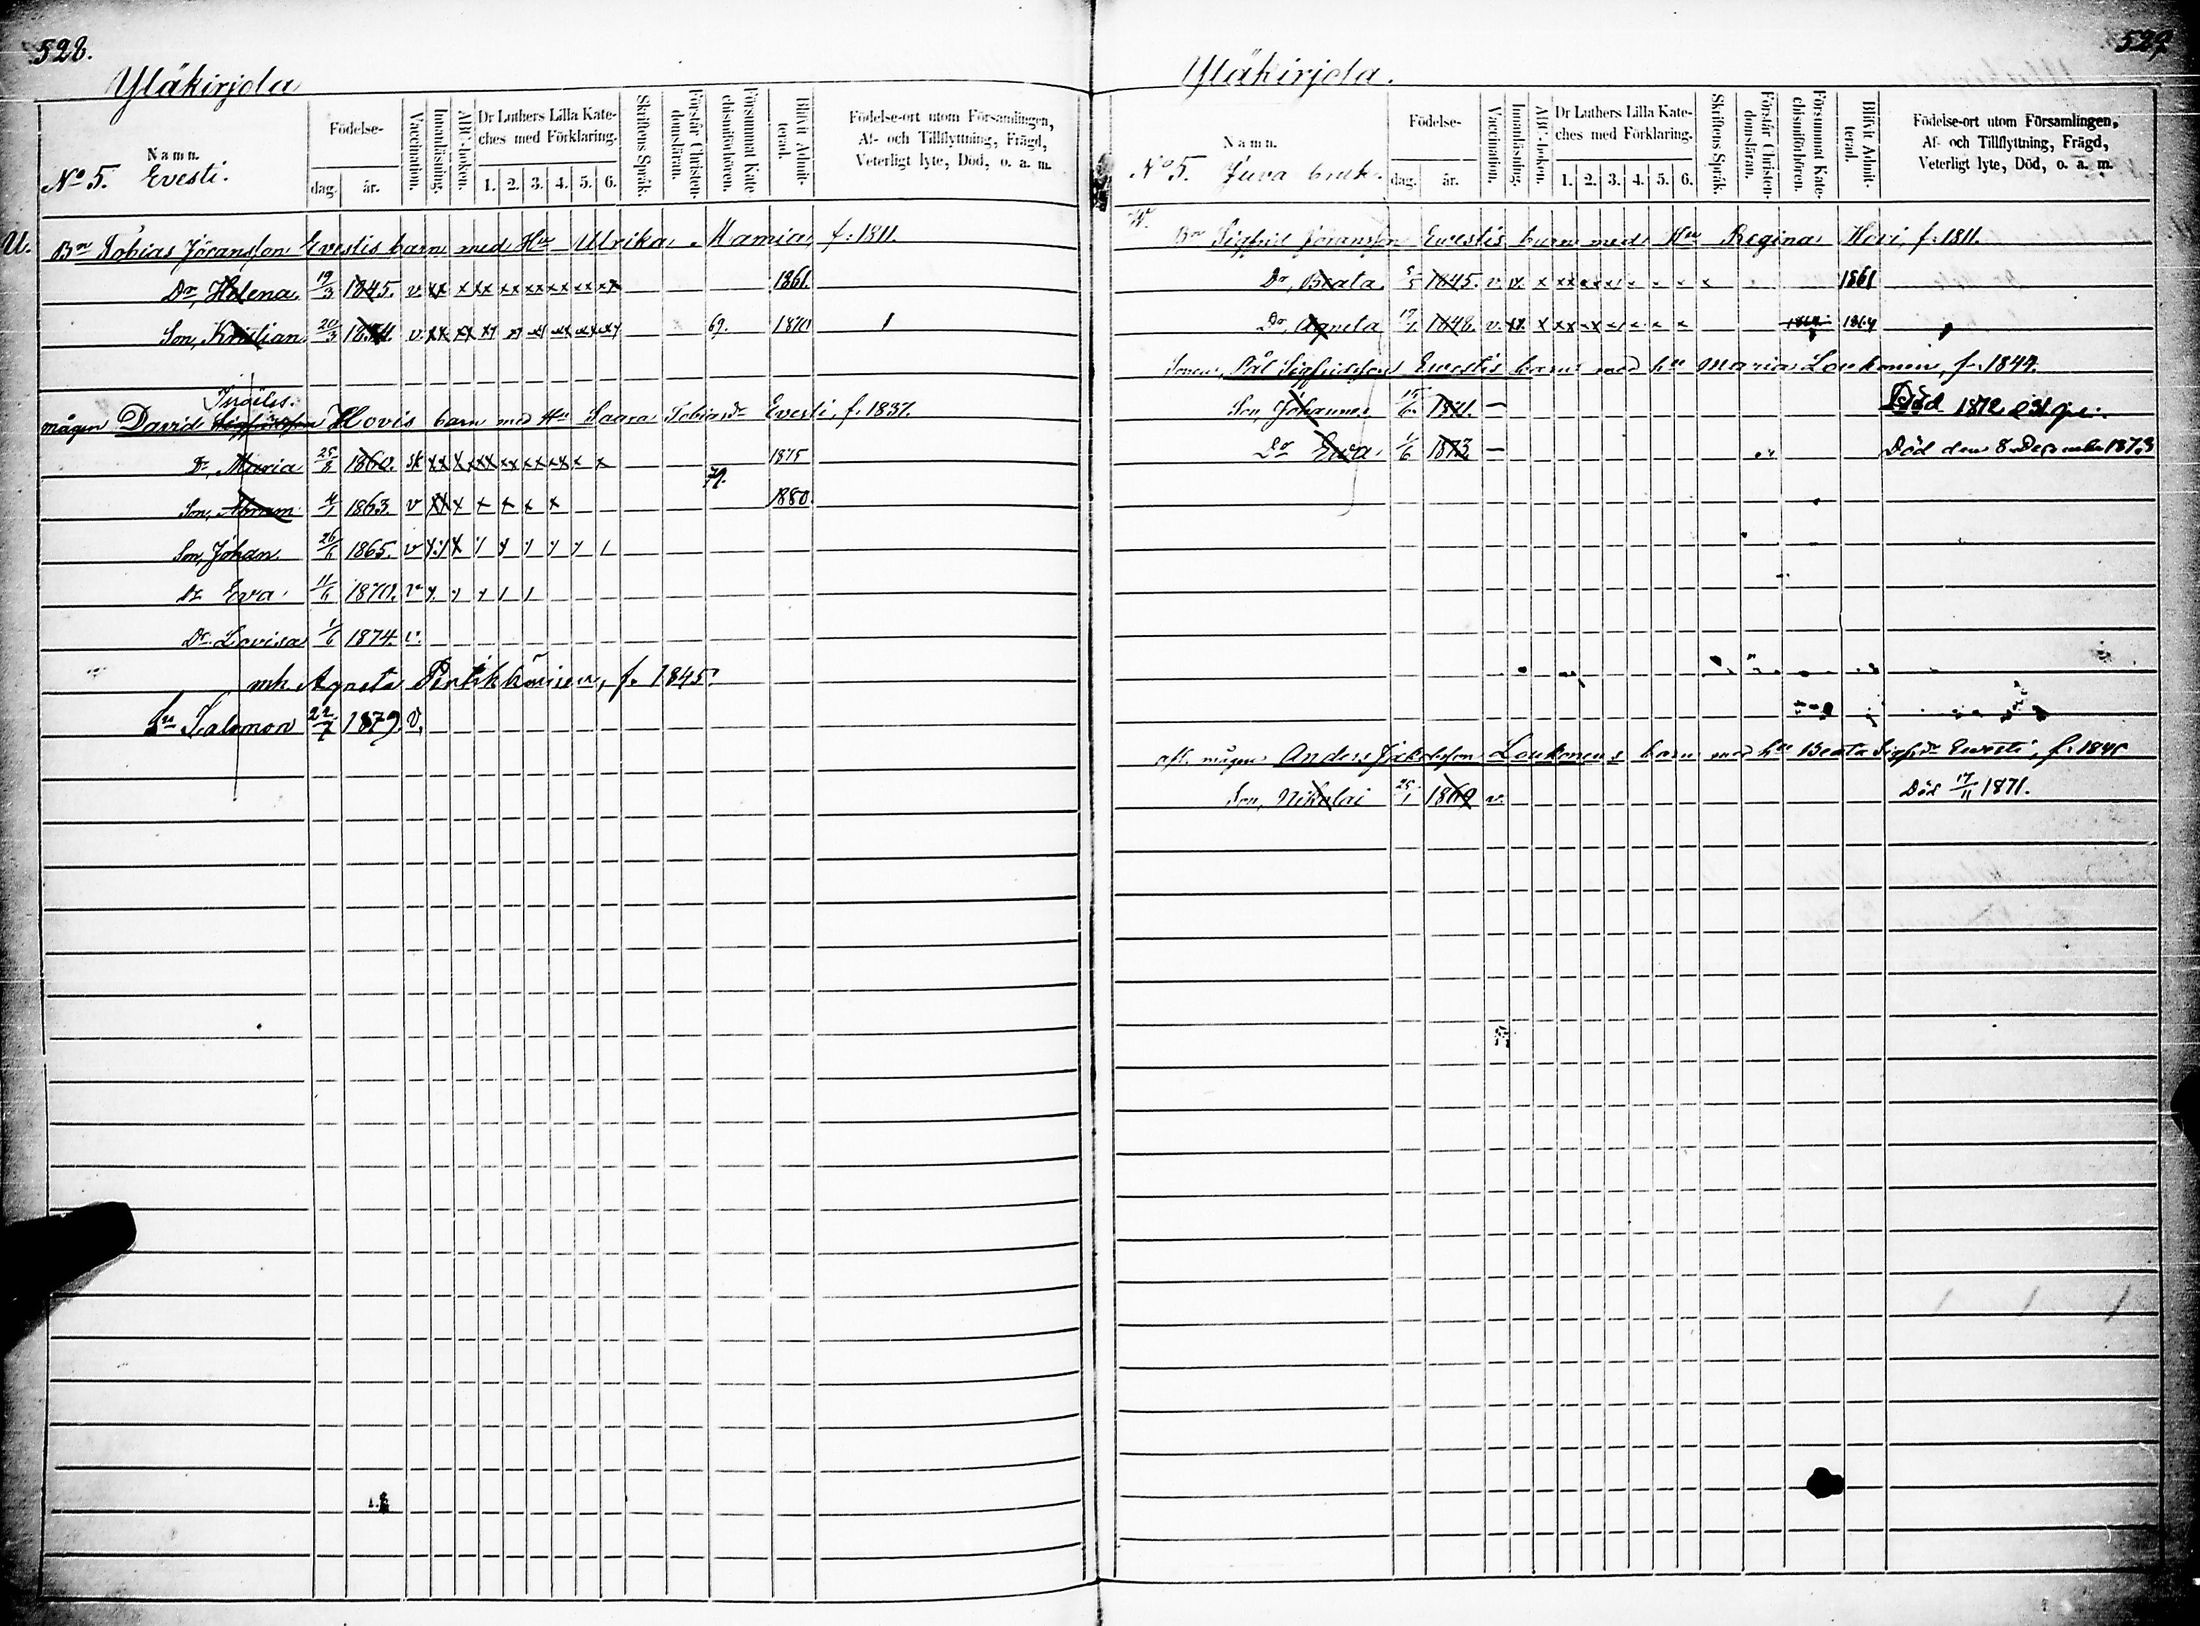 528.
Yläkirjola
Namn.
Födelse-
dag.
år.
Vaccination.
Innanläsning.
ABC-boken.
Dr Luthers Lilla Kate-
ches med Förklaring.
1. 2. 3. 4. 5. 6.
Skriftens Språk.
Förstår Christen-
domsläran.
Försummat Kate-
chismiförhören.
Blifvit Admit-
terad.
Födelse-ort utom Församlingen,
Af- och Tillflyttning, Frägd,
Veterligt lyte, Död, o. a. m.
No 5. Evesti.
U. Bn Tobias Jöransson Evestis barn med Hu Ulrika Mamia f: 1811.
Dr, Helena 19/3 1845. v. xx x xx xx xx xx xx xx 1861.
Son, Kristian 20/3 v. xx xx 69. 1870
Israelss.
mågen David Hovis barn med Hu Saara Tobiasdr Evesti, f. 1837.
Dr, Maria 25/8 1860. sk xx x xx xx xx xx x x 1875
79.
Son, Abram 4/1 1863. v xx x x x x x 1880.
Son, Johan 26/6 1865. v
Dr Eva 11/6 1870. v
Dr Lovisa 1/6 1874. v.
mh. Agneta f. 1845.
Sn Salomon 22/7 1879. v.
529
Yläkirjola.
Namn.
Födelse-
dag.
år.
Vaccination.
Innanläsning.
ABC-boken.
Dr Luthers Lilla Kate-
ches med Förklaring.
1. 2. 3. 4. 5. 6.
Skriftens Språk.
Förstår Christen-
domsläran.
Försummat Kate-
chismiförhören.
Blifvit Admit-
terad.
Födelse-ort utom Församlingen,
Af- och Tillflyttning, Frägd,
Veterligt lyte, Död, o. a. m.
No 5. Juva bruk.
Bn Sigfrid Jöransson Evestis barn med Hu Regina Hovi, f. 1811.
Dr, Beata 5/5 1845. v. 1861
Dr, Agneta 1848. v. 1864
Sonen, Pål Sigfridsson Ewestis barn med hu Maria Loukonen, f. 1844.
Son, Johannes 15/6 1871. — Död 1872
Dr Ewa 1/6 1873 — Död den 8 December 1873
afl. mågen Anders Jakobsson Loukonens barn med hu Beata Sigfrdr Ewesti, f. 1845
Son, Nikolai 25/1 1869 v. Död 17/11 1871.